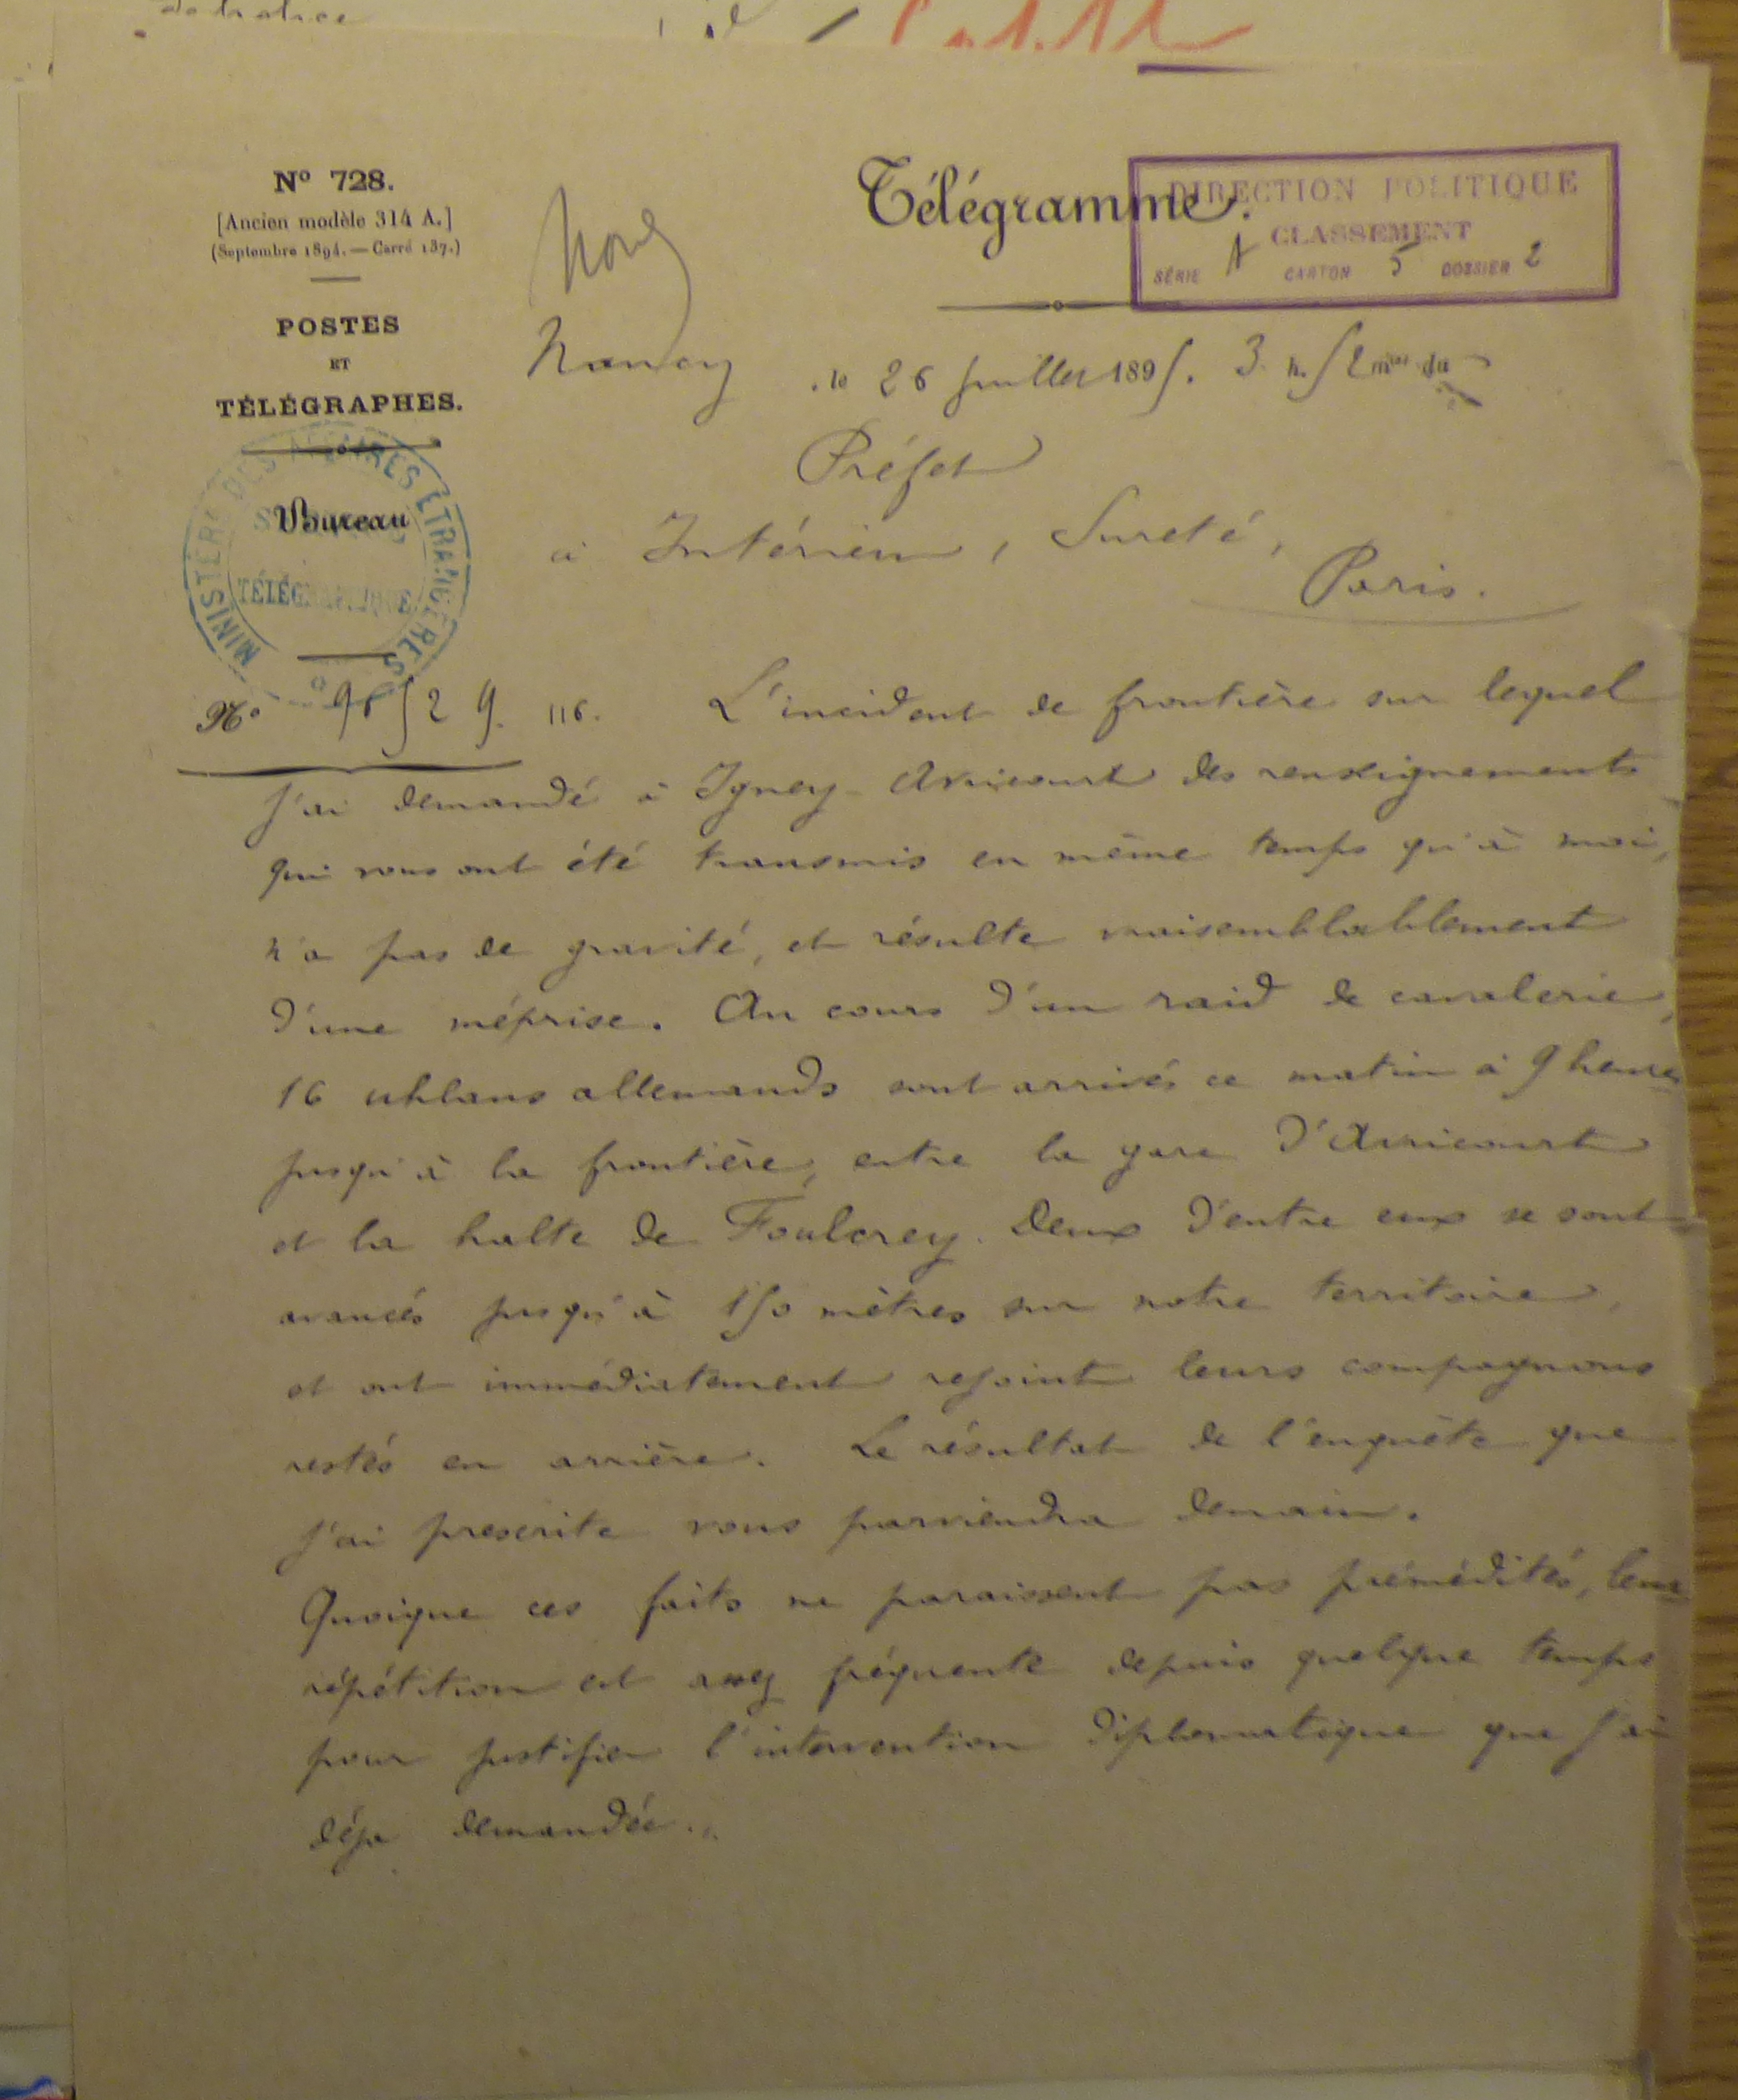 de france
N° 728.
[Ancien modèle 314 A.]
(Septembre 1894. — Carré 137.)
POSTES
ET
TÉLÉGRAPHES.
Bureau
MINISTÈRE DES AFFAIRES ETRANGÈRES
TÉLÉGRAPHIQUE
Télégramme.
DIRECTION POLITIQUE
CLASSEMENT
SÉRIE A CARTON 5 DOSSIER 2
Nancy, le 26 Juillet 1895. 3 h. 52 mtes du
Préfet
à Intérieur, Sureté,
Paris.
N° 96529. 116. L'incident de frontière sur lequel
j'ai demandé à Igney-Avricourt des renseignements
qui vous ont été transmis en même temps qu'à moi,
n'a pas de gravité, et résulte vraisemblablement
d'une méprise. Au cours d'un raid de cavalerie,
16 uhlans allemands sont arrivés ce matin à 9 heures
jusqu'à la frontière, entre la gare d'Avricourt
et la halte de Foulcrey. Deux d'entre eux se sont
avancés jusqu'à 150 mètres sur notre territoire,
et ont immédiatement rejoint leurs compagnons
restés en arrière. Le résultat de l'enquête que
j'ai prescrite vous parviendra demain.
Quoique ces faits ne paraissent pas prémédités, leur
répétition est assez fréquente depuis quelque temps
pour justifier l'intervention diplomatique que j'ai
déja demandée.